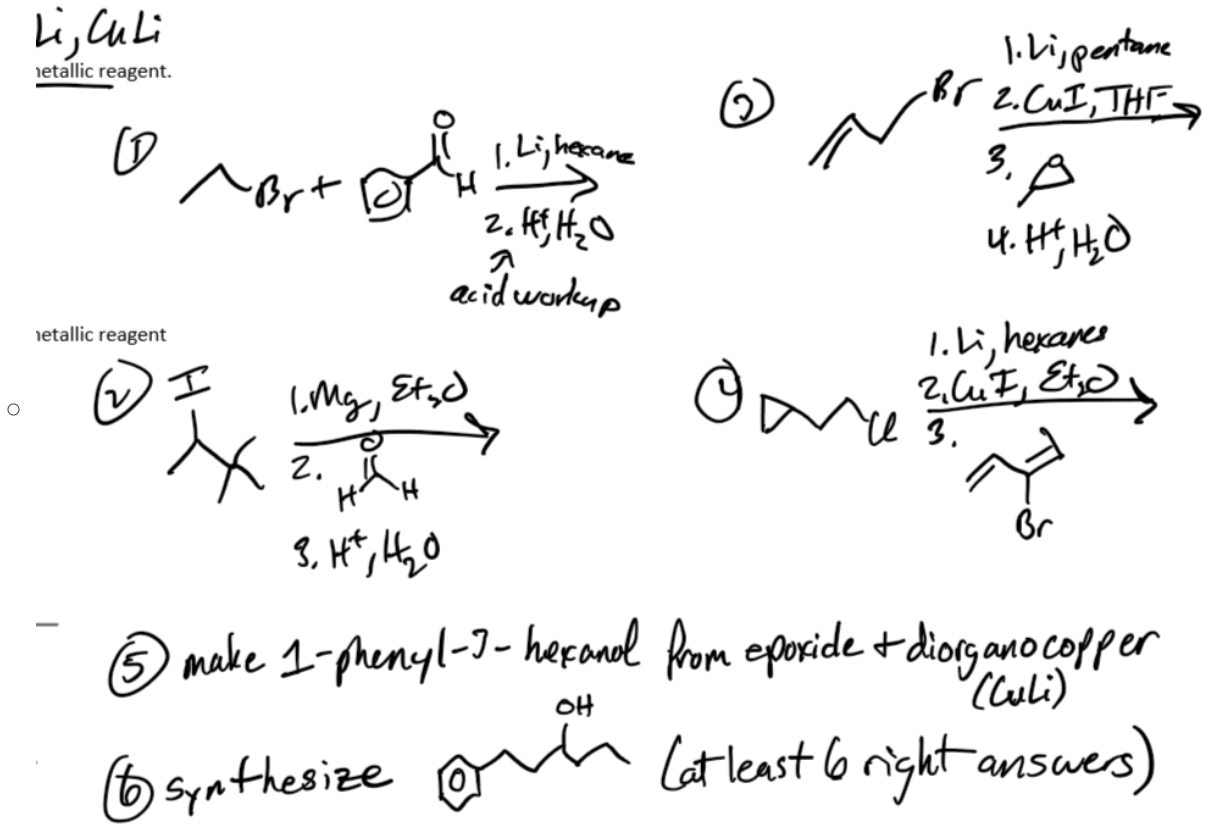 Li, CuLi
netallic reagent.
① Br + O H 1. Li, hexane
2. H⁺, H₂O
acid workup
③ Br 1. Li, pentane
2. CuI, THF
3. O
4. H⁺, H₂O
netallic reagent
② I 1. Mg, Et₂O
2. O H H
3. H⁺, H₂O
④ Cl 1. Li, hexanes
2. CuI, Et₂O
3.
Br
⑤ make 1-phenyl-3-hexanol from epoxide + diorganocopper
(CuLi)
OH
⑥ synthesize (at least 6 right answers)